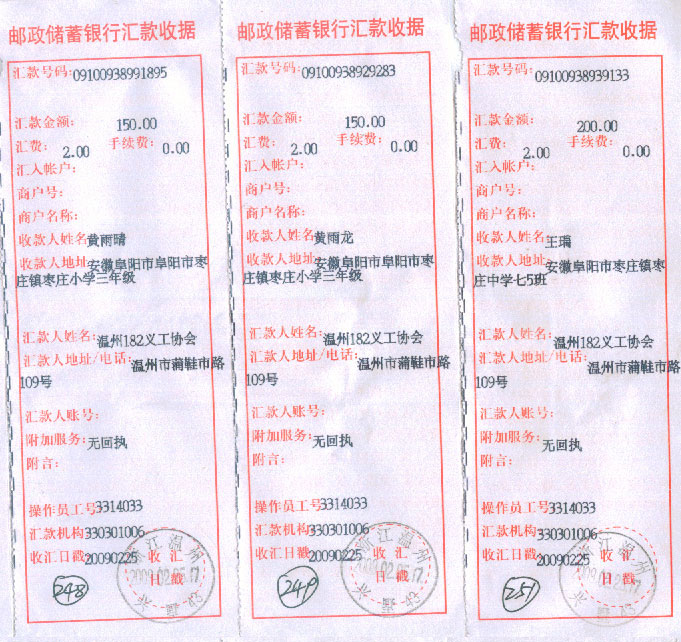 邮政储蓄银行汇款收据
汇款号码:09100938991895
汇款金额: 150.00
汇费: 2.00 手续费: 0.00
汇入帐户:
商户号:
商户名称:
收款人姓名黄雨晴
收款人地址安徽阜阳市阜阳市枣
庄镇枣庄小学三年级
汇款人姓名:温州182义工协会
汇款人地址/电话:温州市蒲鞋市路
109号
汇款人账号:
附加服务:无回执
附言:
操作员工号3314033
汇款机构330301006
收汇日戳20090225
收汇
日戳
248
邮政储蓄银行汇款收据
汇款号码:09100938929283
汇款金额: 150.00
汇费: 2.00 手续费: 0.00
汇入帐户:
商户号:
商户名称:
收款人姓名黄雨龙
收款人地址安徽阜阳市阜阳市枣
庄镇枣庄小学三年级
汇款人姓名:温州182义工协会
汇款人地址/电话:温州市蒲鞋市路
109号
汇款人账号:
附加服务:无回执
附言:
操作员工号3314033
汇款机构330301006
收汇日戳20090225
收汇
日戳
249
邮政储蓄银行汇款收据
汇款号码:09100938939133
汇款金额: 200.00
汇费: 2.00 手续费: 0.00
汇入帐户:
商户号:
商户名称:
收款人姓名王瑞
收款人地址安徽阜阳市枣庄镇枣
庄中学七5班
汇款人姓名:温州182义工协会
汇款人地址/电话:温州市蒲鞋市路
109号
汇款人账号:
附加服务:无回执
附言:
操作员工号3314033
汇款机构330301006
收汇日戳20090225
收汇
日戳
251